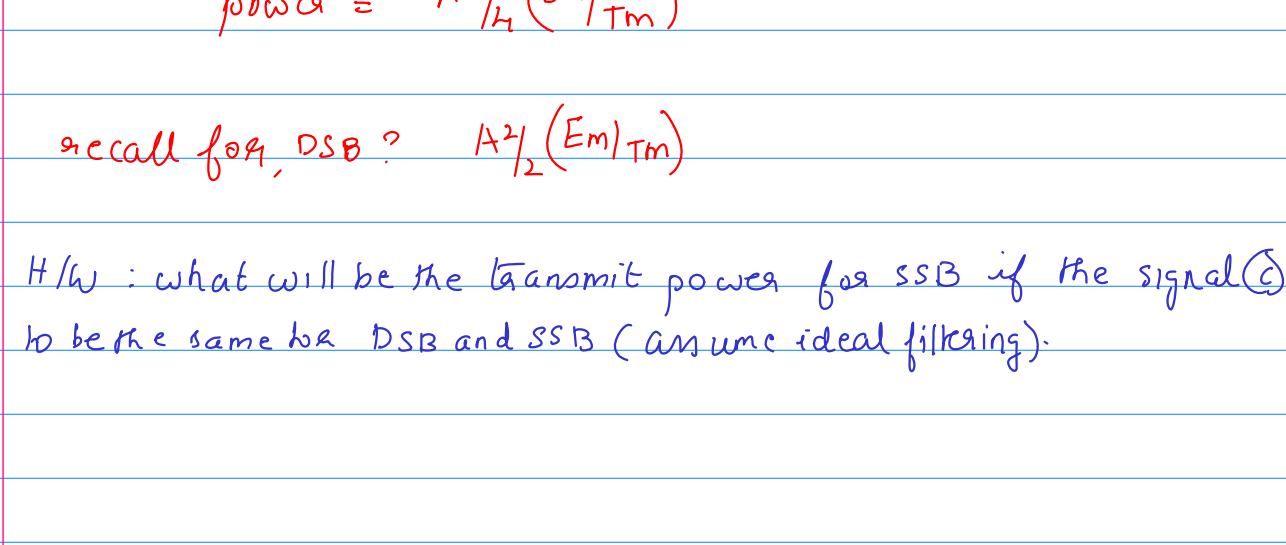 power =
recall for, DSB? A²/2 (Em/Tm)
H/W : what will be the transmit power for SSB if the signal @
to be the same for DSB and SSB (assume ideal filtering).